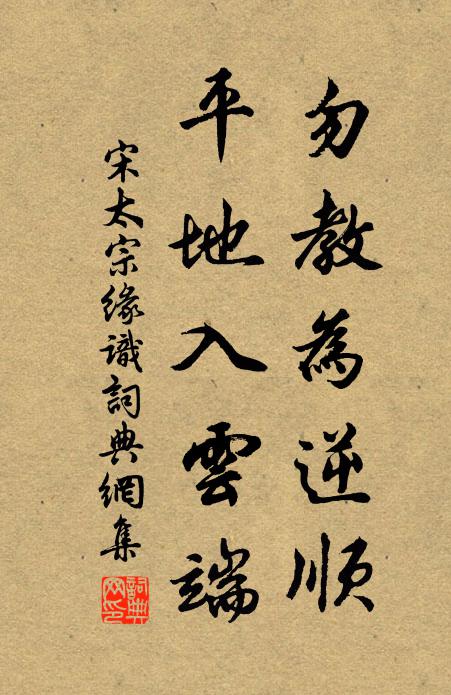 勿教為逆順
平地入雲端
宋太宗緣識詞典網集
詞典網印